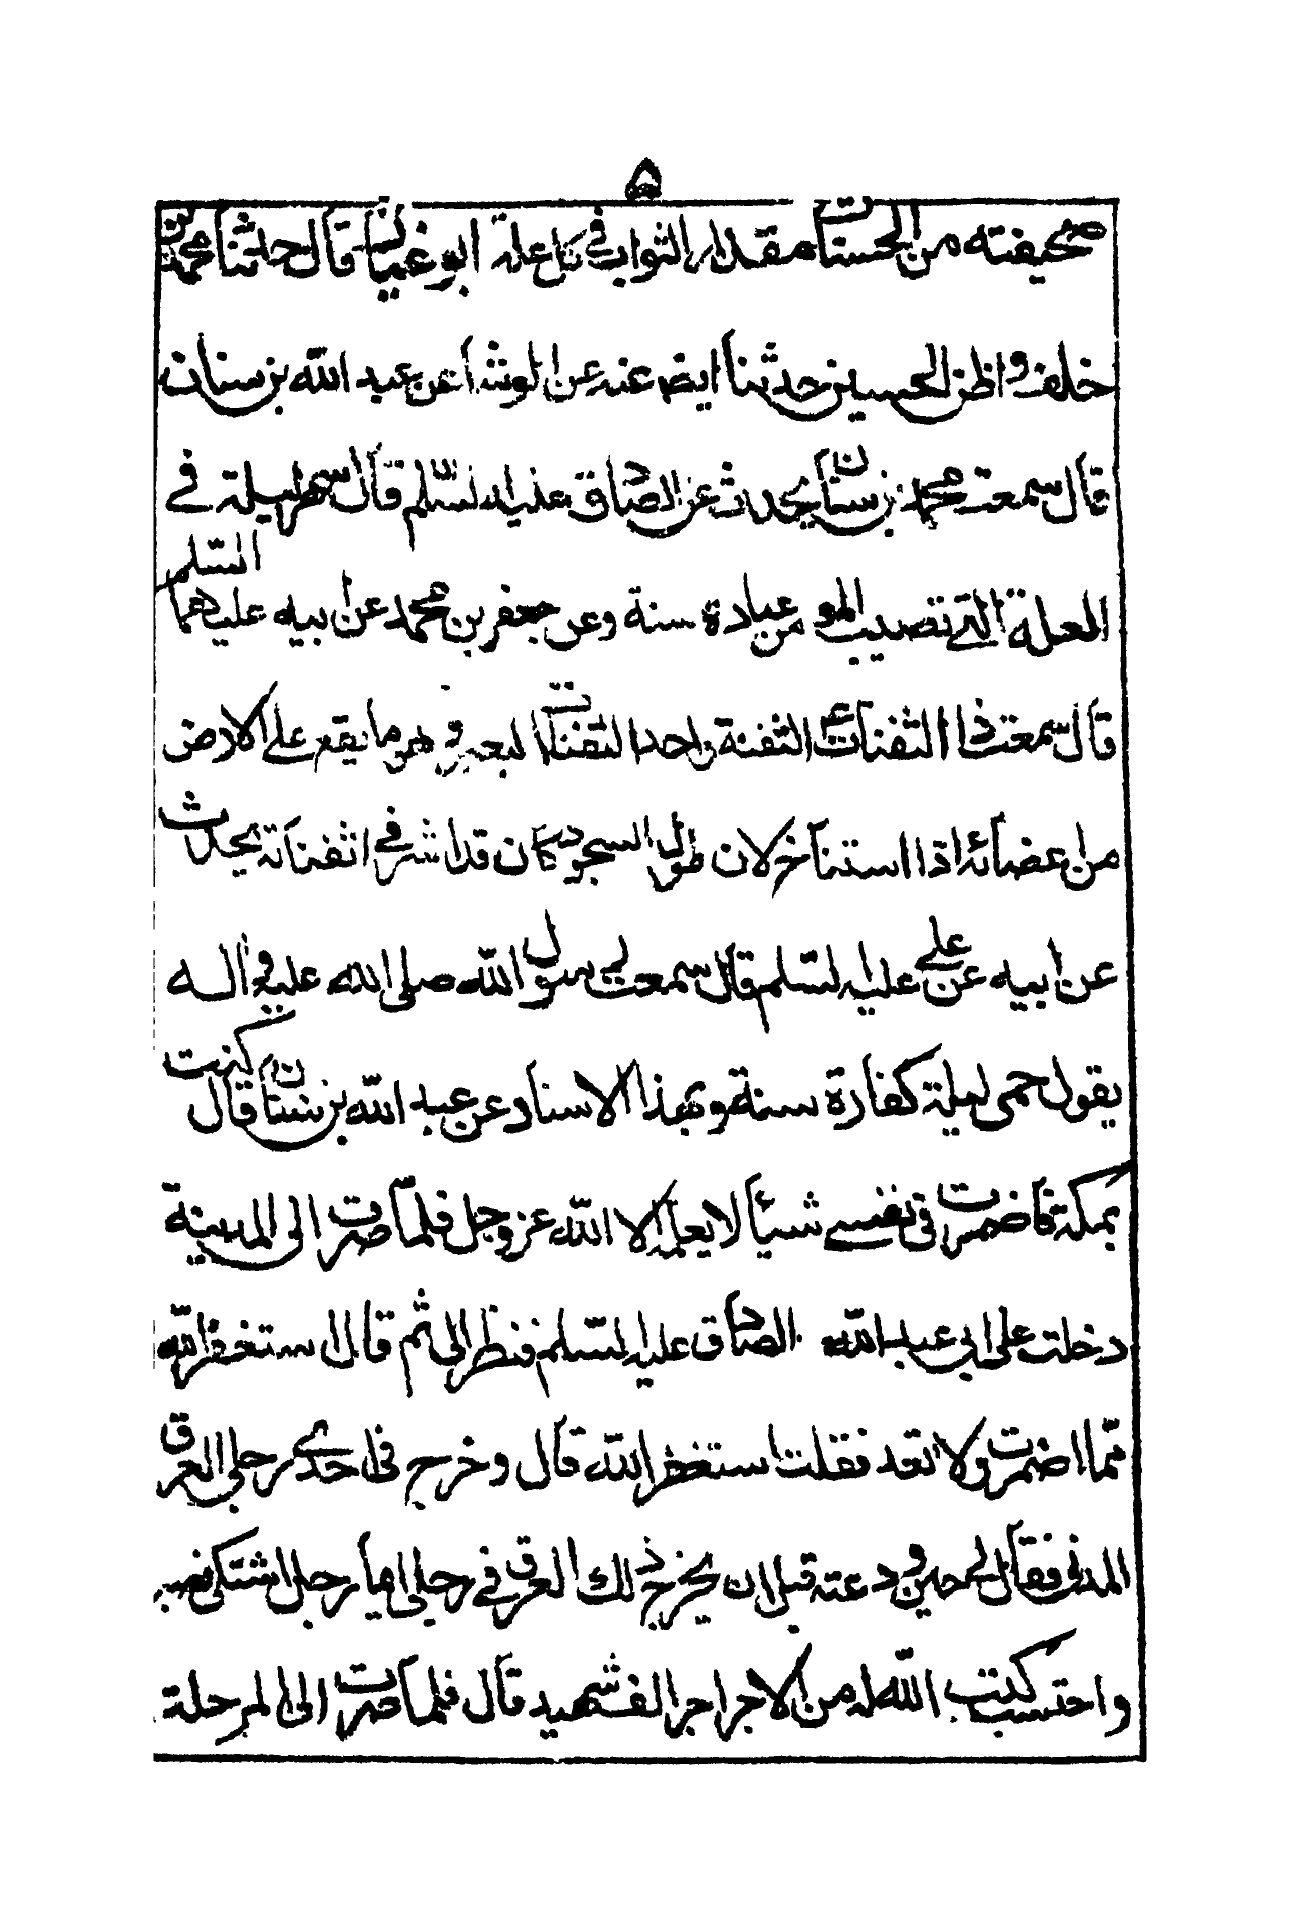 ۵
صحيفته من الحسنات مقدار الثواب في كل علة ابو غياث قال حدثنا محمد بن
خلف واظن الحسين حدثنا ايض عنه عن الوشا عن عبد الله بن سنان
قال سمعت محمد بن سنان يحدث عن الصادق عليه السلم قال سهر ليلة في
العلة التي تصيب المومن عبادة سنة وعن جعفر بن محمد عن ابيه عليهما السلم
قال سمعت ذا الثفنات الثفنة واحد الثفنات البعير وهو ما يقع على الارض
من اعضائه اذا استناخ لان طول السجود كان قد اثر في ثفناته يحدث
عن ابيه عن علي عليه السلم قال سمعت رسول الله صلى الله عليه واله
يقول حمى ليلة كفارة سنة وبهذا الاسناد عن عبد الله بن سنان قال كنت
بمكة فاضمرت في نفسي شيأ لا يعلمه الا الله عز وجل فلما صرت الى المدينة
دخلت على ابي عبد الله الصادق عليه السلم فنظر الى ثم قال استغفر الله
مما اضمرت ولا تعد فقلت استغفر الله قال وخرج في احدى رجلي العرق
المدني فقال لي حين ودعته قبل ان يخرج ذلك العرق في رجلي ايما رجل اشتكى فصبر
واحتسب كتب الله له من الاجر اجر الف شهيد قال فلما صرت الى المرحلة